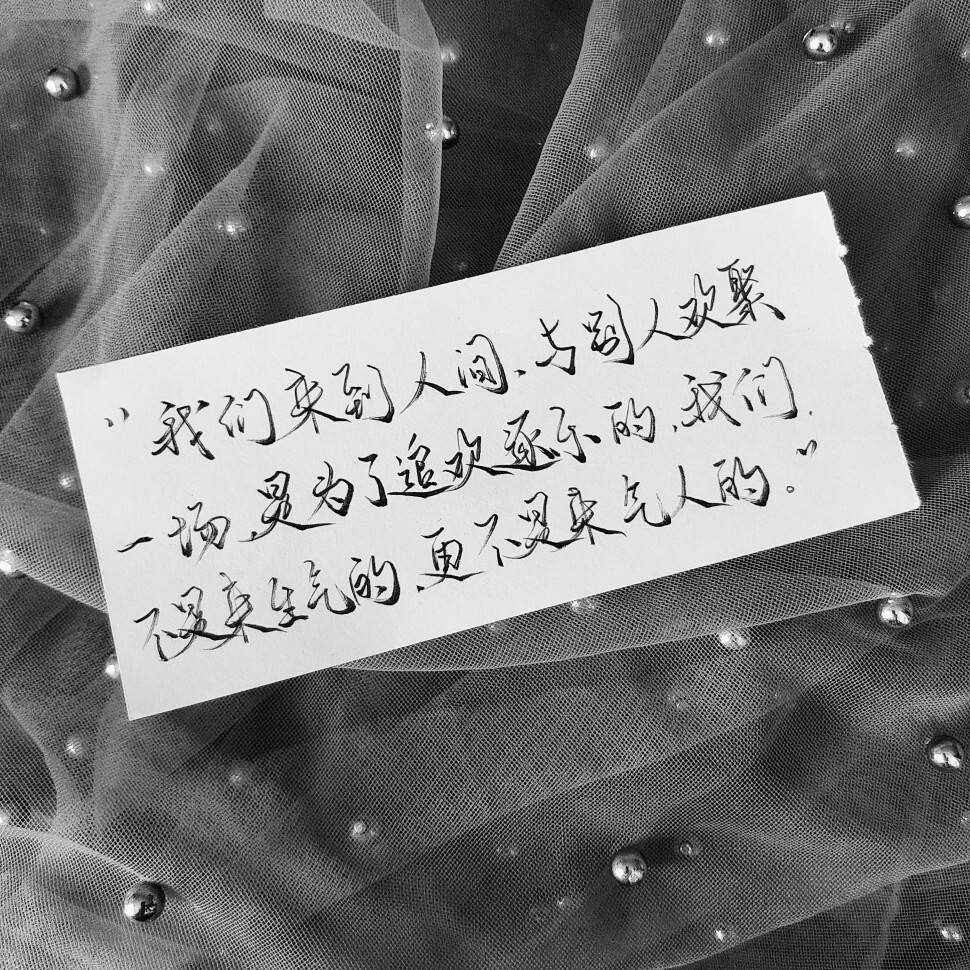 “我们来到人间、与别人欢聚
一场,是为了追欢逐乐的,我们,
不是来生气的,更不是来气人的。”